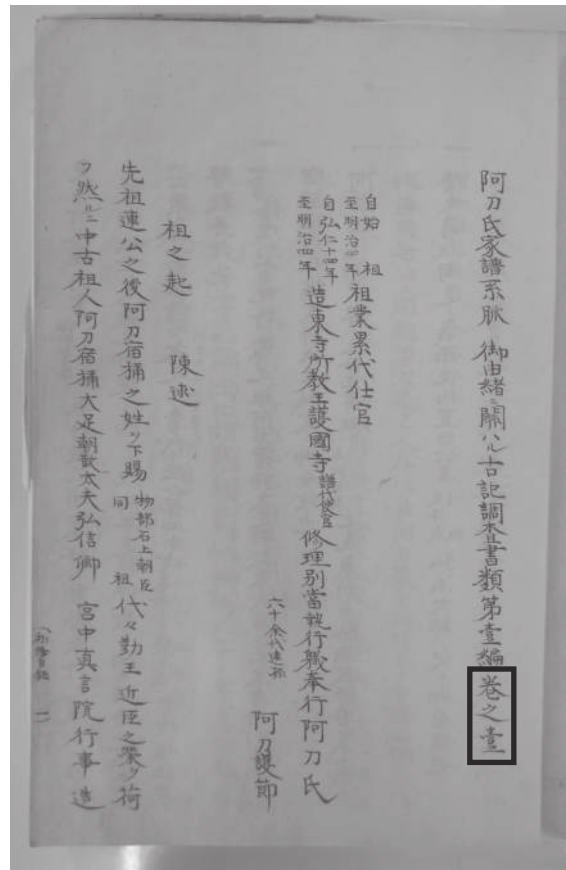 阿刀氏家譜系脉 御由緒ニ關ハル古記調査書類第壹編卷之壹
自始祖
至明治四年
祖業累代仕官
自弘仁十四年
至明治四年
造東寺所教王護國寺
譜代使官
修理別當執行職奉行阿刀氏
六十余代連孫
阿刀護節
祖之起 陳述
先祖蓮公之後阿刀宿祢之姓ヲ下賜
物部石上朝臣
同祖
代々勤王近臣之榮ヲ荷
フ然ルニ中古祖人阿刀宿祢大足朝散太夫弘信卿 宮中真言院行事造